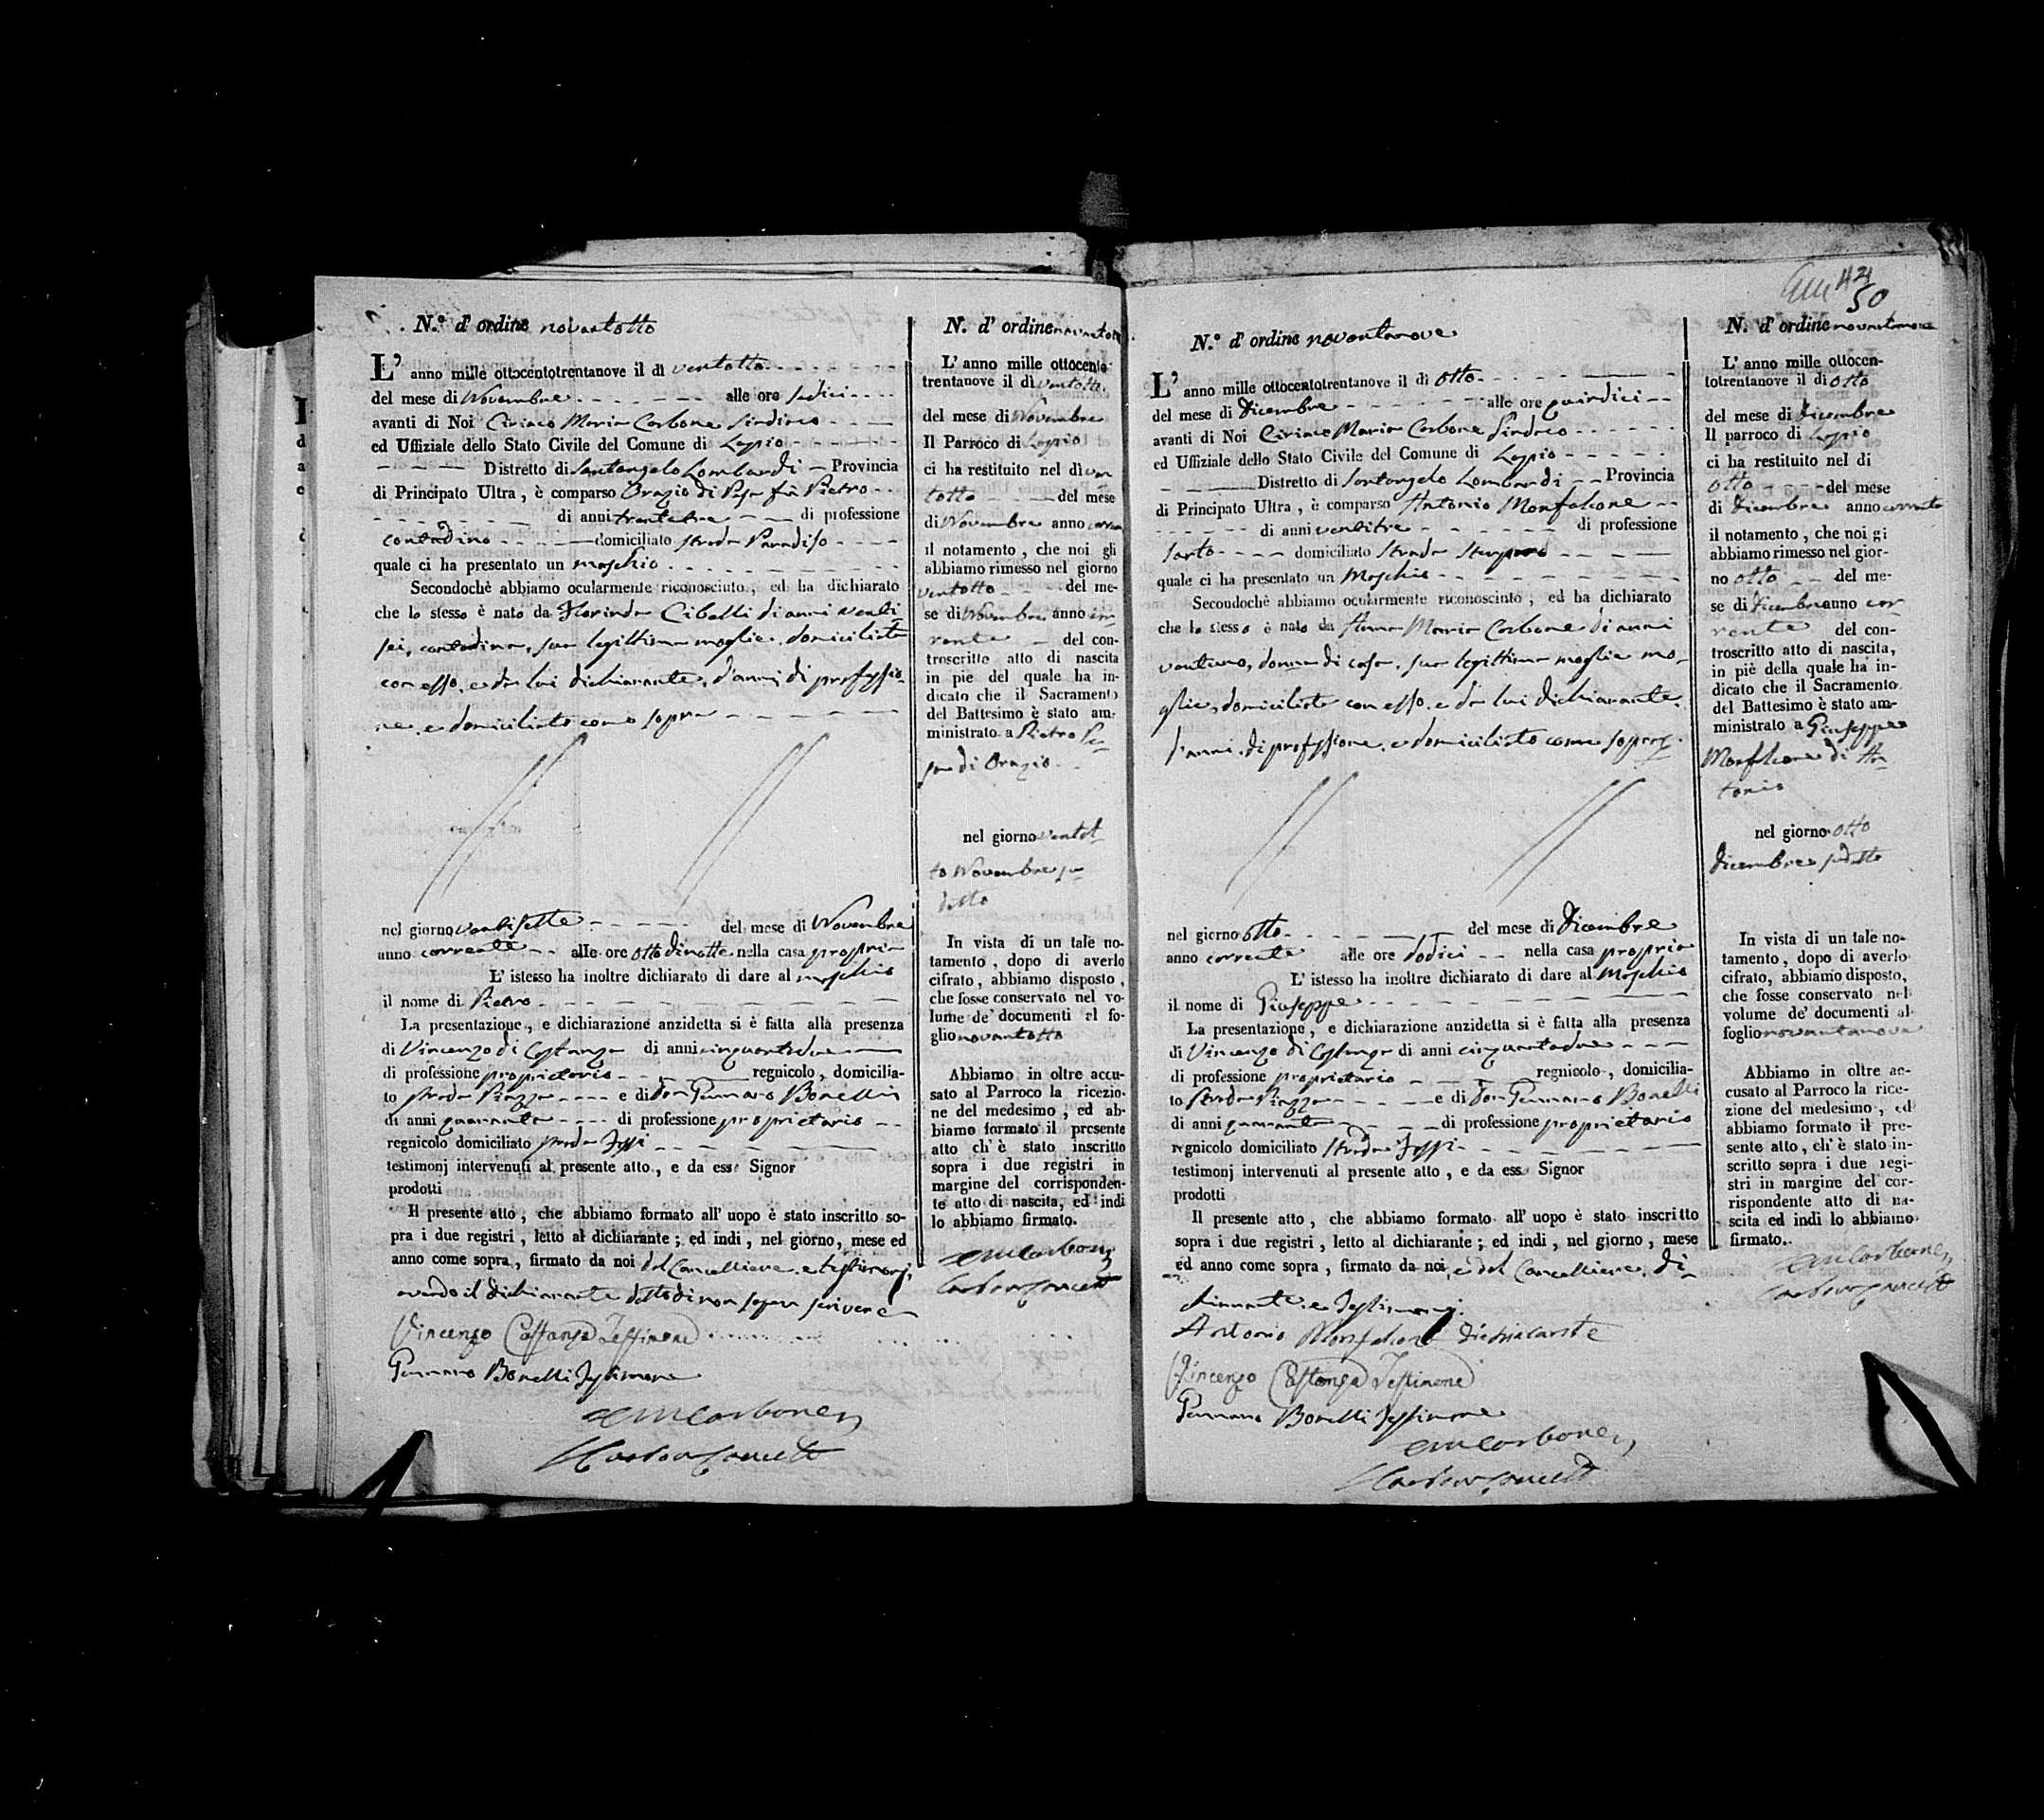 N.° d' ordine novantotto
L' anno mille ottocentotrentanove il dì ventotto
del mese di Novembre alle ore sedici
avanti di Noi Ciriaco Maria Carbone Sindaco
ed Uffiziale dello Stato Civile del Comune di Lapio
Distretto di Santangelo Lombardi Provincia
di Principato Ultra, è comparso Orazio di Pesa fù Pietro
di anni trentatre di professione
contadino domiciliato strada Paradiso
quale ci ha presentato un maschio
Secondochè abbiamo ocularmente riconosciuto, ed ha dichiarato
che lo stesso è nato da Florinda Cibelli di anni venti
sei, contadina, sua legittima moglie, domiciliata
con esso, e da lui dichiarante, d'anni, di professio-
ne, e domiciliato come sopra
nel giorno ventisette del mese di Novembre
anno corrente alle ore otto di notte nella casa propria
L' istesso ha inoltre dichiarato di dare al maschio
il nome di Pietro
La presentazione, e dichiarazione anzidetta si è fatta alla presenza
di Vincenzo di Costanza di anni cinquantadue
di professione proprietario regnicolo, domicilia-
to strada Piazza e di Don Gennaro Bonelli
di anni quaranta di professione proprietario
regnicolo domiciliato strada
testimonj intervenuti al presente atto, e da essi Signor
prodotti
Il presente atto, che abbiamo formato all' uopo è stato inscritto so-
pra i due registri, letto al dichiarante; ed indi, nel giorno, mese ed
anno come sopra, firmato da noi del Cancelliere, e testimonj,
avendo il dichiarante detto di non sapere scrivere
Vincenzo Costanza Testimone
Gennaro Bonelli Testimone
CMCarbone
Carbone Cancell
N. d' ordine novantotto
L' anno mille ottocento
trentanove il dì ventotto
del mese di Novembre
Il Parroco di Lapio
ci ha restituito nel dì ven
totto del mese
di Novembre anno corren
il notamento, che noi gli
abbiamo rimesso nel giorno
ventotto del me-
se di Novembre anno cor-
rente del con-
troscritto atto di nascita
in piè del quale ha in-
dicato che il Sacramento
del Battesimo è stato am-
ministrato a Pietro Pe-
sa di Orazio
nel giorno ventot-
to Novembre su
detto
In vista di un tale no-
tamento, dopo di averlo
cifrato, abbiamo disposto,
che fosse conservato nel vo-
lume de' documenti al fo-
glio novantotto
Abbiamo in oltre accu-
sato al Parroco la ricezio-
ne del medesimo, ed ab-
biamo formato il presente
atto ch' è stato inscritto
sopra i due registri in
margine del corrisponden-
te atto di nascita, ed indi
lo abbiamo firmato.
CMCarbone
Carbone Cancell
42
50
N.° d' ordine novantanove
L' anno mille ottocentotrentanove il dì otto
del mese di Dicembre alle ore quindici
avanti di Noi Ciriaco Maria Carbone Sindaco
ed Uffiziale dello Stato Civile del Comune di Lapio
Distretto di Santangelo Lombardi Provincia
di Principato Ultra, è comparso Antonio Monfalcone
di anni ventitre di professione
sarto domiciliato strada
quale ci ha presentato un Maschio
Secondochè abbiamo ocularmente riconosciuto, ed ha dichiarato
che lo stesso è nato da Anna Maria Carbone di anni
ventuno, donna di casa, sua legittima moglie mo-
glie, domiciliata con esso, e da lui dichiarante,
d'anni, di professione, e domiciliato come sopra
nel giorno otto del mese di Dicembre
anno corrente alle ore dodici nella casa propria
L' istesso ha inoltre dichiarato di dare al Maschio
il nome di Giuseppe
La presentazione, e dichiarazione anzidetta si è fatta alla presenza
di Vincenzo di Costanza di anni cinquantadue
di professione proprietario regnicolo, domicilia-
to strada Piazza e di Don Gennaro Bonelli
di anni quaranta di professione proprietario
regnicolo domiciliato strada
testimonj intervenuti al presente atto, e da essi Signor
prodotti
Il presente atto, che abbiamo formato all' uopo è stato inscritto
sopra i due registri, letto al dichiarante; ed indi, nel giorno, mese
ed anno come sopra, firmato da noi, e dal Cancelliere, di-
chiarante, e Testimonj.
Antonio Monfalcone Dichiarante
Vincenzo Costanza Testimone
Gennaro Bonelli Testimone
CMCarbone
Carbone Cancell
N. d' ordine novantanove
L' anno mille ottocen-
totrentanove il dì otto
del mese di Dicembre
Il parroco di Lapio
ci ha restituito nel dì
otto del mese
di Dicembre anno corrente
il notamento, che noi gi
abbiamo rimesso nel gior-
no otto del me-
se di Dicembre anno cor-
rente del con-
troscritto atto di nascita,
in piè della quale ha in-
dicato che il Sacramento
del Battesimo è stato am-
ministrato a Giuseppe
Monfalcone di An-
tonio
nel giorno otto
Dicembre sudetto
In vista di un tale no-
tamento, dopo di averlo
cifrato, abbiamo disposto,
che fosse conservato nel
volume de' documenti al
foglio novantanove
Abbiamo in oltre ac-
cusato al Parroco la rice-
zione del medesimo, ed
abbiamo formato il pre-
sente atto, ch' è stato in-
scritto sopra i due regi-
stri in margine del cor-
rispondente atto di na-
scita ed indi lo abbiamo
firmato.
CMCarbone
Carbone Cancell